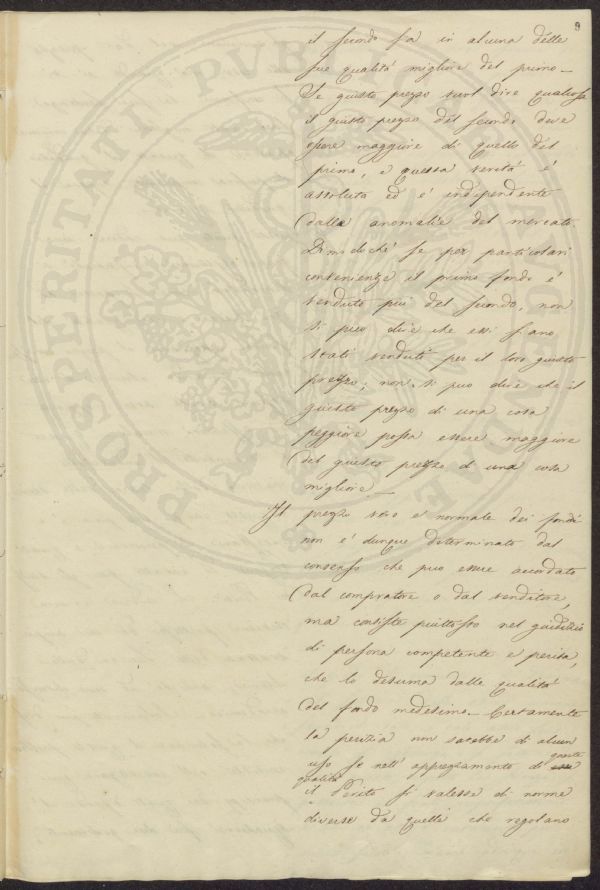 9
il secondo fa in alcuna delle
sue qualità migliore del primo —
Se giusto prezzo vuol dire qualcosa
il giusto prezzo del secondo deve
essere maggiore di quello del
primo, e questa verità è
assoluta ed è indipendente
dalle anomalie del mercato.
Dimodochè se per particolari
convenienze il primo fondo è
venduto più del secondo, non
si può dire che essi siano
stati venduti per il loro giusto
prezzo; non si può dire che il
giusto prezzo di una cosa
peggiore possa essere maggiore
del giusto prezzo di una cosa
migliore —
Il prezzo vero e normale dei fondi
non è dunque determinato dal
consenso che può essere accordato
dal compratore o dal venditore,
ma consiste piuttosto nel giudizio
di persona competente e perita,
che lo desuma dalla qualità
del fondo medesimo — Certamente
la perizia non sarebbe di alcun
uso se nell' apprezzamento di queste
qualità
il Perito si valesse di norme
diverse da quelle che regolano
PROSPERITATI PUBLICAE